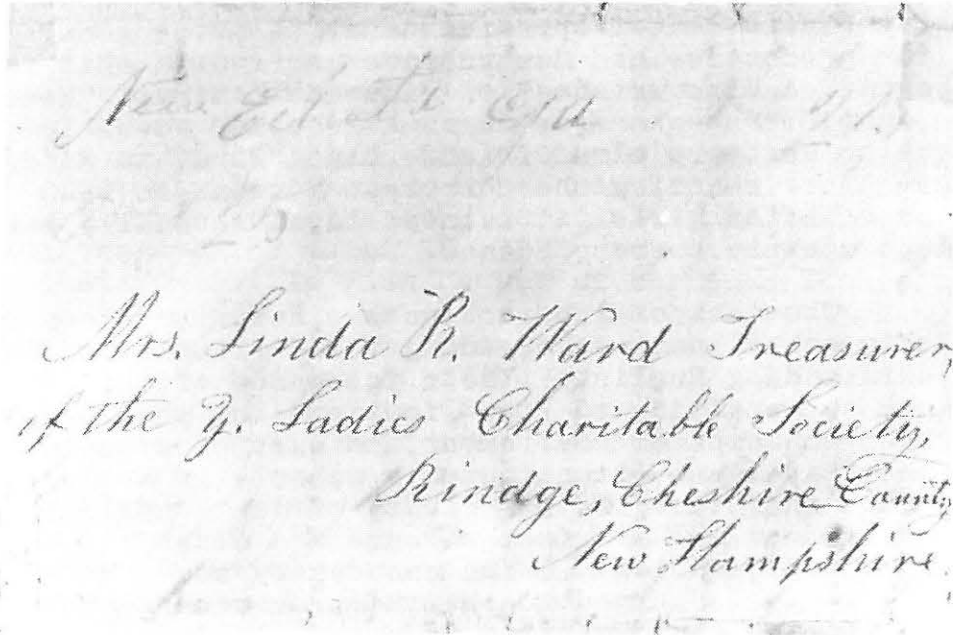 New
Mrs. Linda R. Ward Treasurer,
of the Y. Ladies Charitable Society,
Rindge, Cheshire County
New Hampshire.